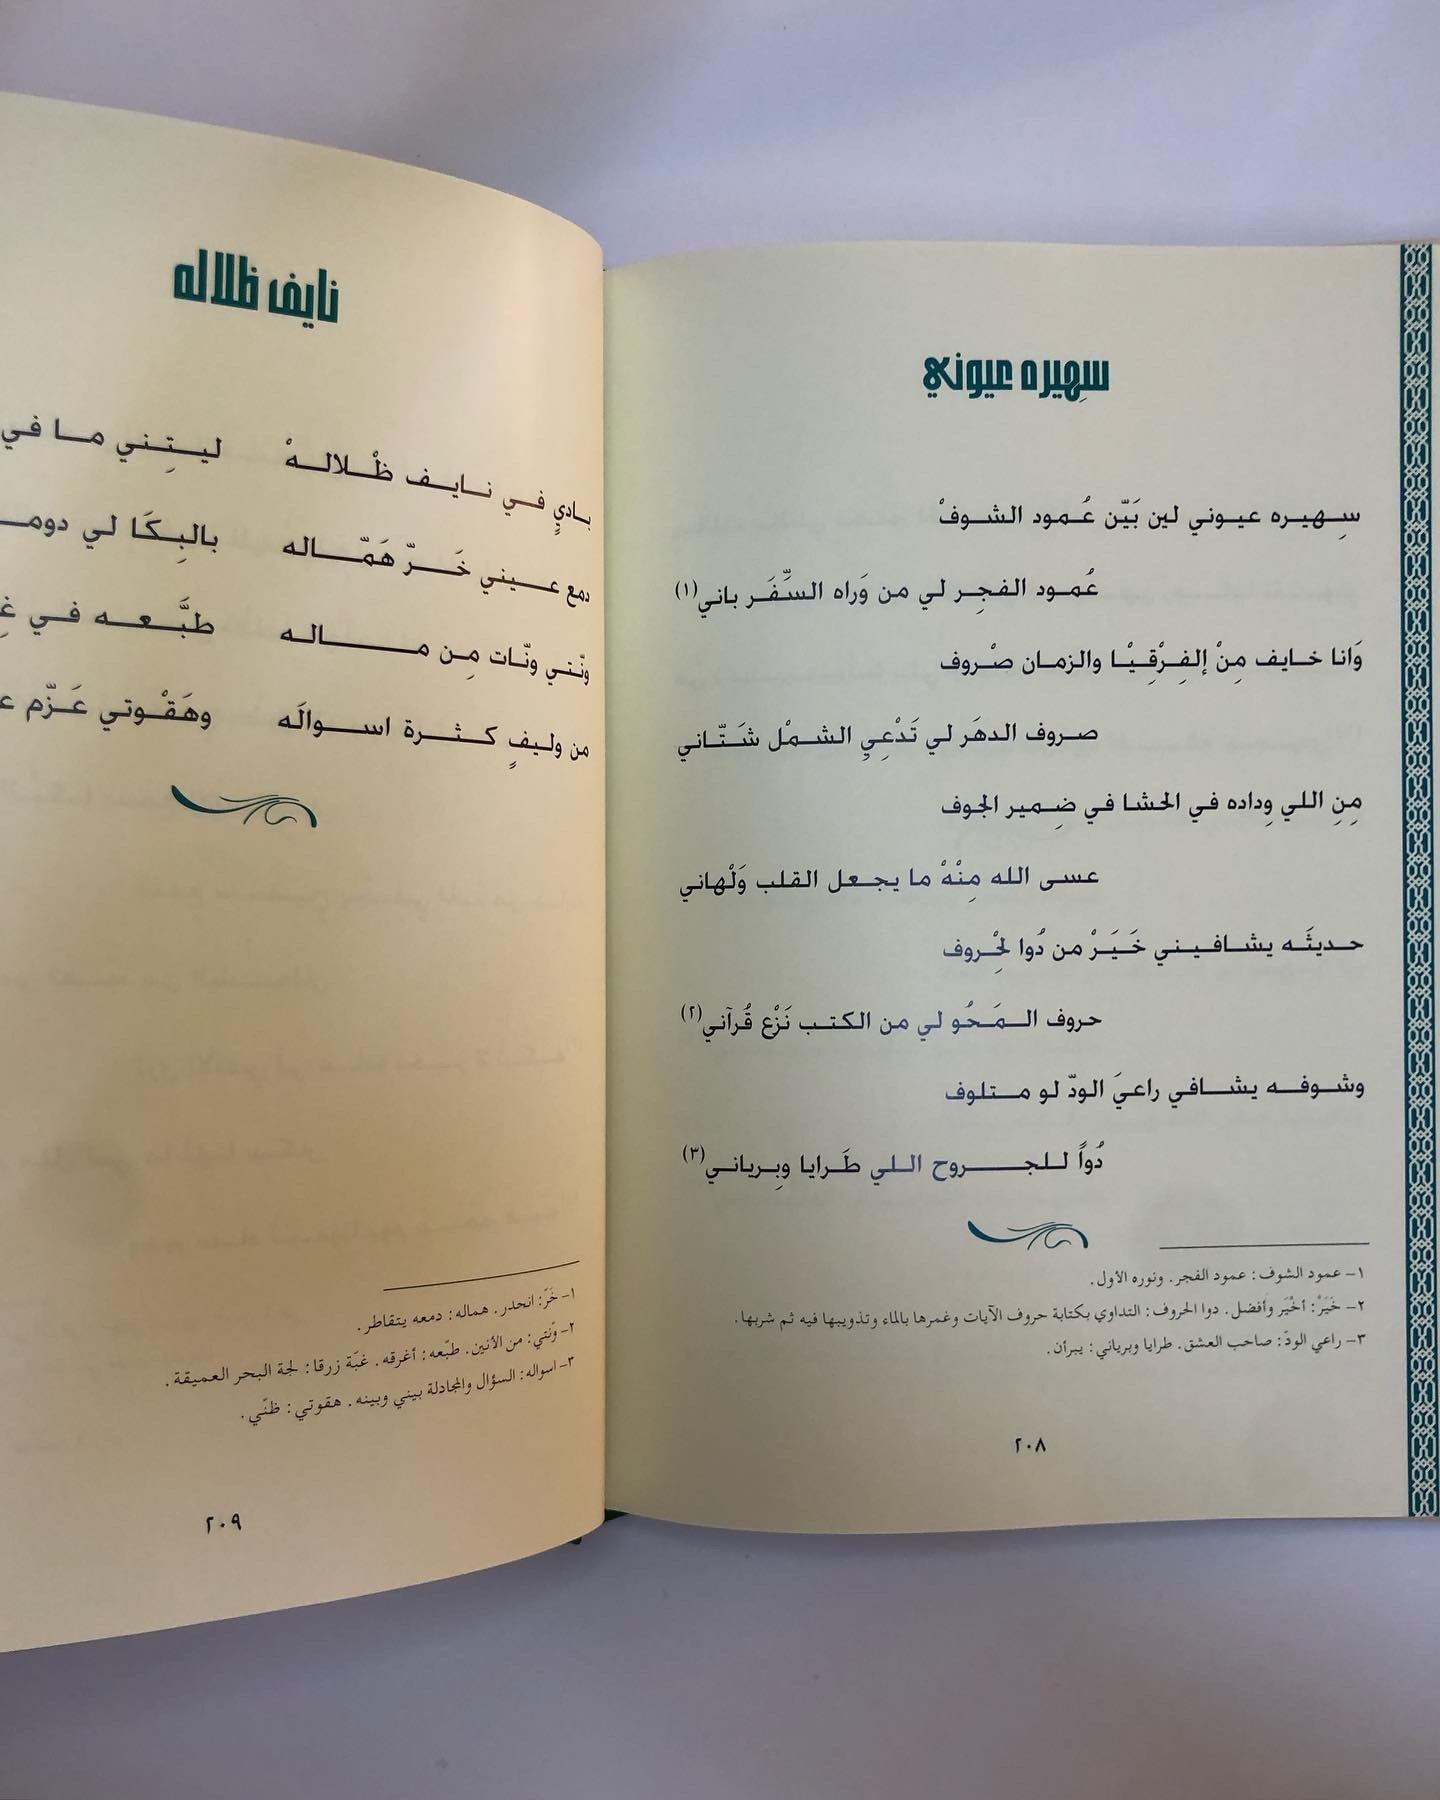 سهيره عيوني
سِهيره عيوني لين بَيّن عُمود الشوفْ
عُمود الفجِر لي من وَراه السِّفَر باني(١)
وَانا خايف مِنْ إلفِرْقِيْا والزمان صْروف
صروف الدهَر لي تَدْعِيِ الشمْل شَتّاني
مِنِ اللي وِداده في الحشا في ضِمير الجوف
عسى الله مِنْهْ ما يجعل القلب وَلْهاني
حديثَه يشافيني خَيَرْ من دُوا لِحْروف
حروف المَحُو لي من الكتب نَزْع قُرآني(٢)
وشوفه يشافي راعيَ الودّ لو متلوف
دُواً للجروح اللي طَرايا وبِرياني(٣)
١- عمود الشوف: عمود الفجر. ونوره الأول.
٢- خَيَرْ: أخْيَر وأفضل. دوا الحروف: التداوي بكتابة حروف الآيات وغمرها بالماء وتذويبها فيه ثم شربها.
٣- راعي الودّ: صاحب العشق. طرايا وبرياني: يبرأن.
٢٠٨
نايف ظلاله
بادي في نايف ظْلالهْ ليتِني ما في
دمع عيني خَرّ هَمّاله بالبِكَا لي
ونّتي ونّات مِن ماله طبَّعه في
من وليفٍ كثرة اسوالَه وهَقْوتي عَزّم
١- خَرّ: انحدر. هماله: دمعه يتقاطر.
٢- ونّتي: من الأنين. طبّعه: أغرقه. غبّة زرقا: لجة البحر العميقة.
٣- اسواله: السؤال والمجادلة بيني وبينه. هقوتي: ظنّي.
٢٠٩